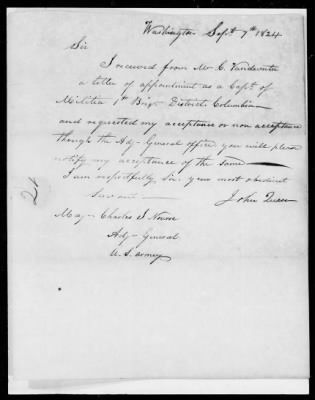 Washington Sept 7th 1824
Sir
I received from Mr C. Vandventer
a letter of appointment as a Capt. of
Militia 1st Brig District Columbia
and requested my acceptance or non acceptance
though the Adj- General office you will please
notify my acceptance of the same
I am respectfully Sir your most obedient
servant
John Queen
Maj- Charles J. Nourse
Adj- General
U.S. army